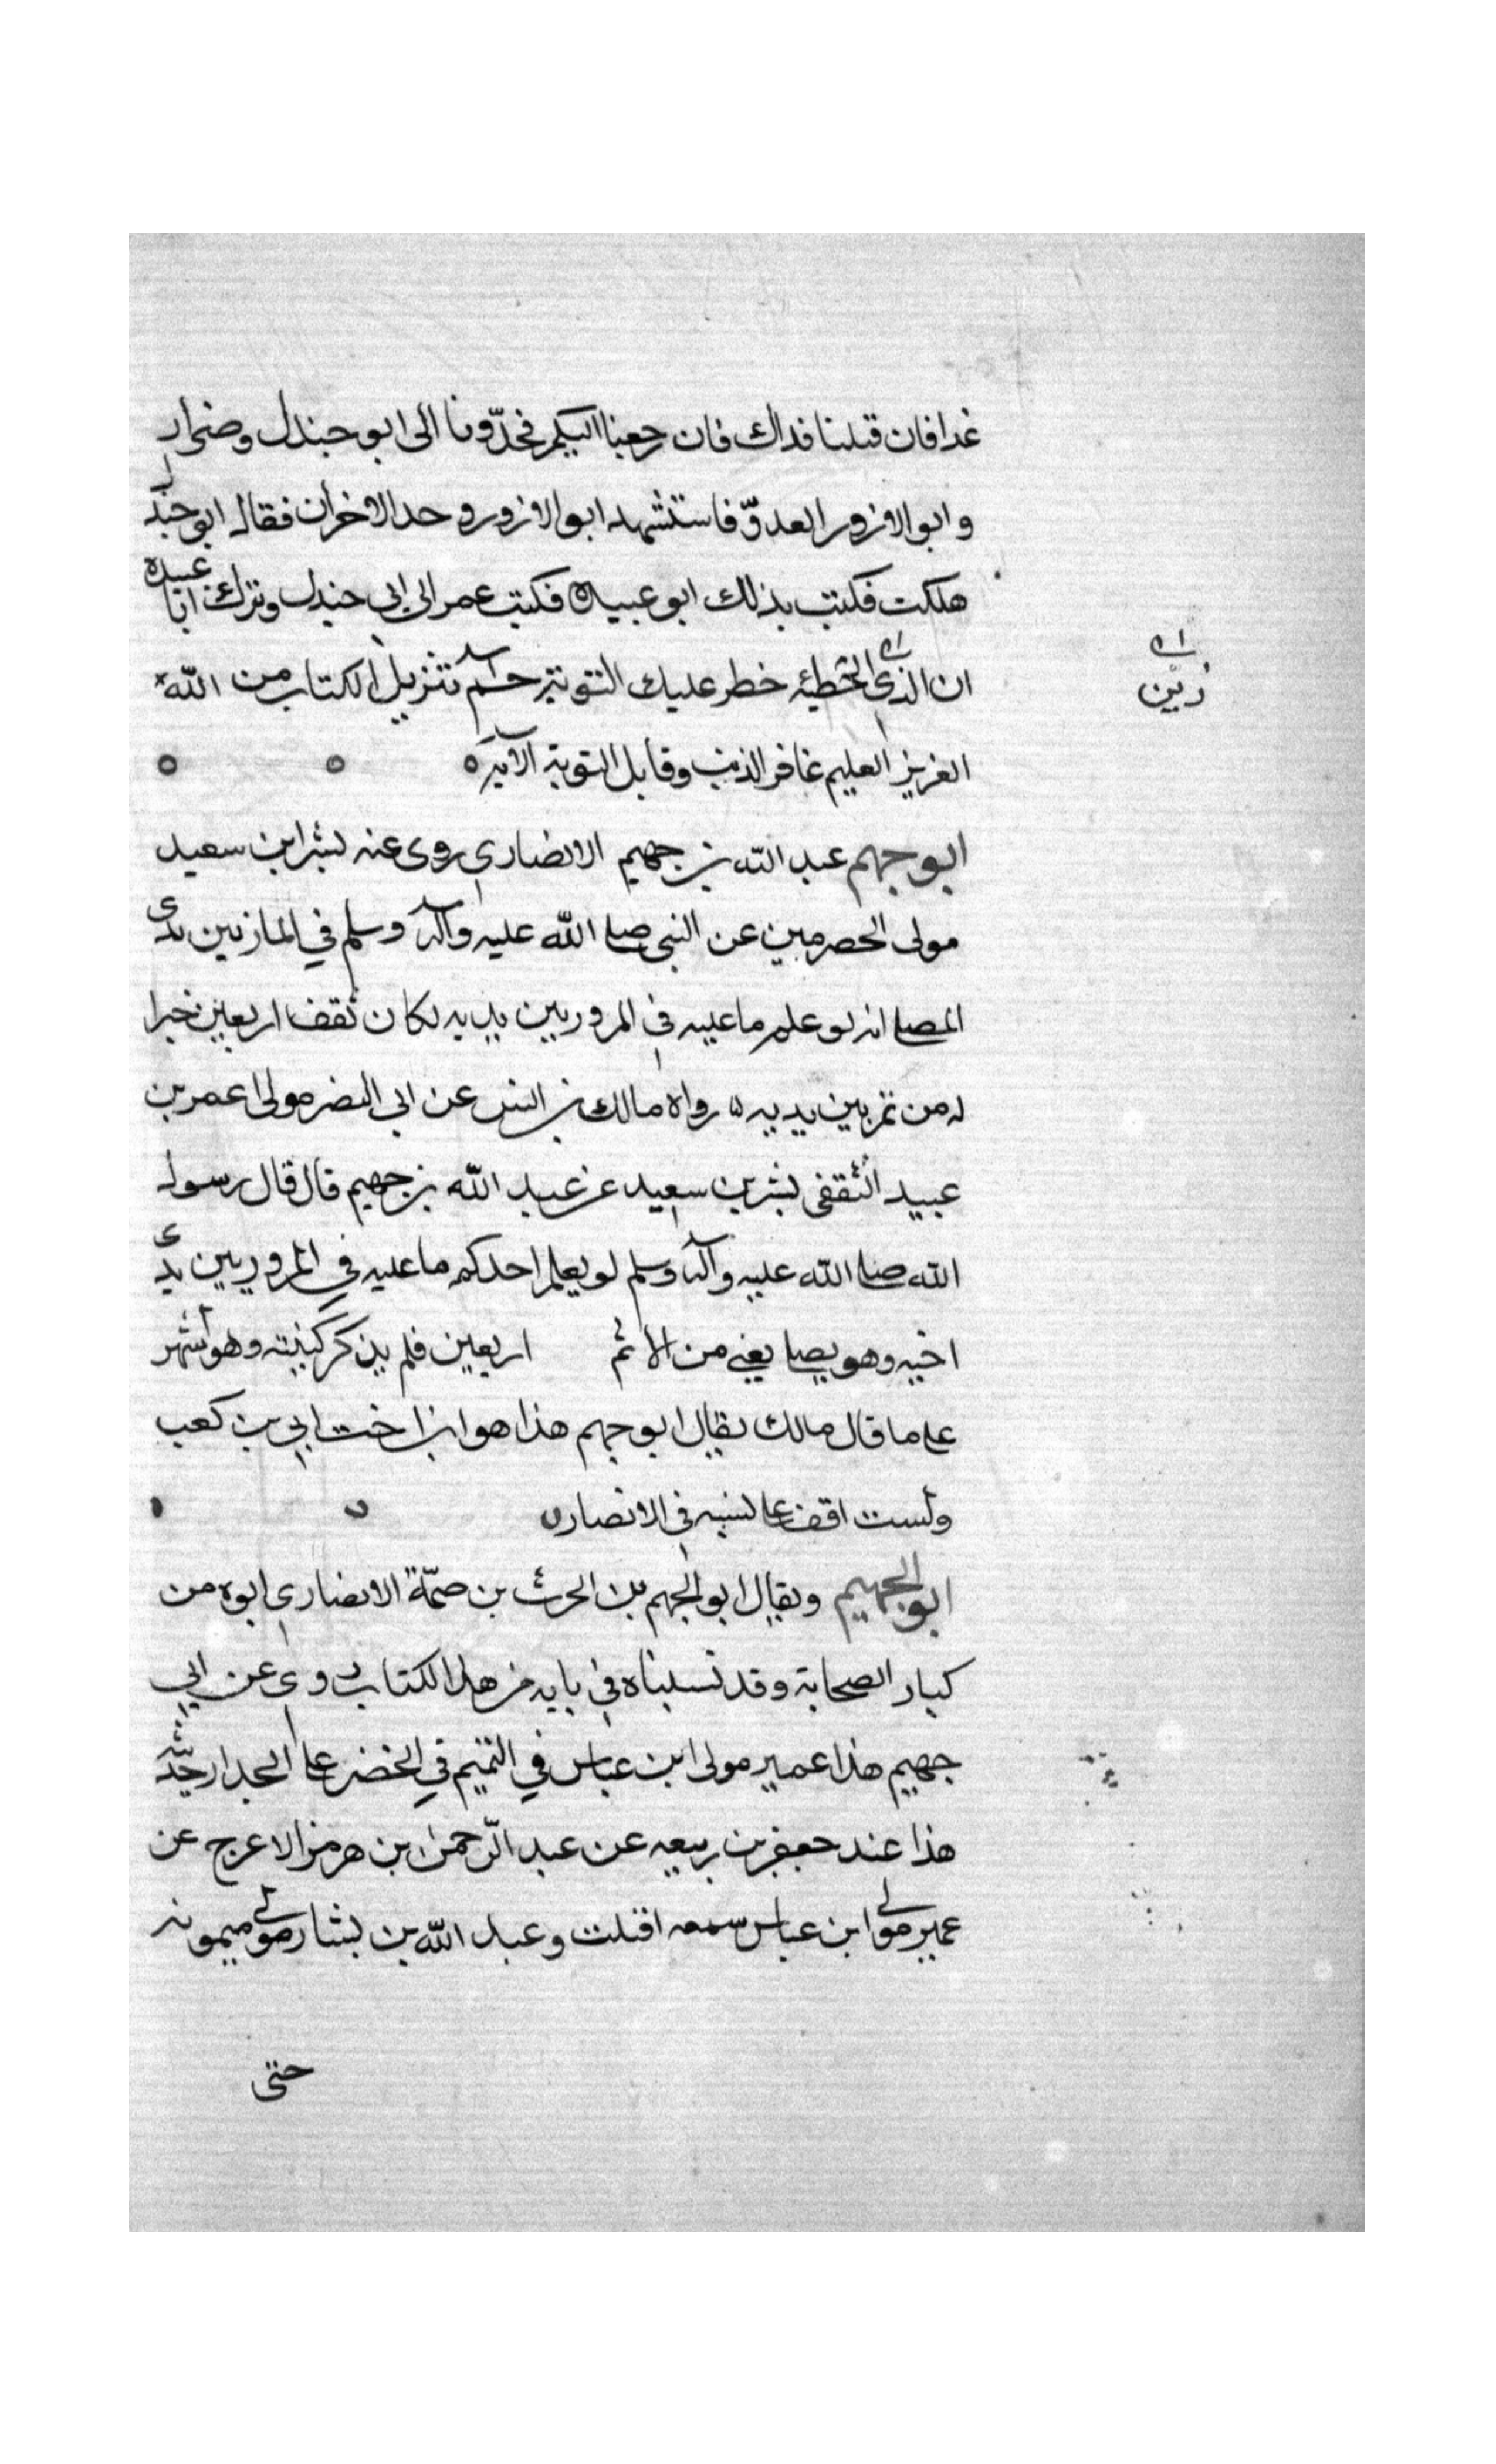 غدا فان قتلنا فداك فان رجعنا اليكم فحدّونا الى ابو جندل وضرار
وابو الازور العدوّ فاستشهد ابو الازور وحد الاخران فقال ابو جندل
هلكت فكتب بذلك ابو عبيدة فكتب عمر الى ابي جندل وترك ابا عبيده
ان الذى الخطيه خطر عليك التوبة حم تنزيل الكتاب من الله
زين
العزيز العليم غافر الذنب وقابل التوبة الآية
ابو جهم عبد الله بن جهيم الانصارى روى عنه بشر ابن سعيد
مولى الحضرمين عن النبى صلى الله عليه وآله وسلم في المار بين يدى
المصلى انه لو علم ما عليه فى المرور بين يديه لكان تقف اربعين خيرا
له من تمر بين يديه رواه مالك بن انس عن ابى النضر مولى عمر بن
عبيد الثقفى بشر بن سعيد عن عبد الله بن جهيم قال قال رسول
الله صلى الله عليه وآله وسلم لو يعلم احدكم ما عليه في المرور بين يدى
اخيه وهو يصلى يعنى من الاثم اربعين فلم يذكر كنيته وهو أشهر
على ما قال مالك يقال ابو جهم هذا هو ابن اخت ابي بن كعب
ولست اقف على نسبه فى الانصار
ابو الجهيم ويقال ابو الجهم بن الحرث بن صمّة الانصارى ابوه من
كبار الصحابة وقد نسبناه في بابه من هذا الكتاب روى عن ابي
جهيم هذا عمير مولى ابن عباس في التيمم في الحضر على الجدار حديثه
هذا عند جعفر بن ربيعه عن عبد الرحمن بن هرمز الاعرج عن
عمير مولى ابن عباس سمعه اقبلت وعبد الله بن بشار مولى ميمونه
حتى